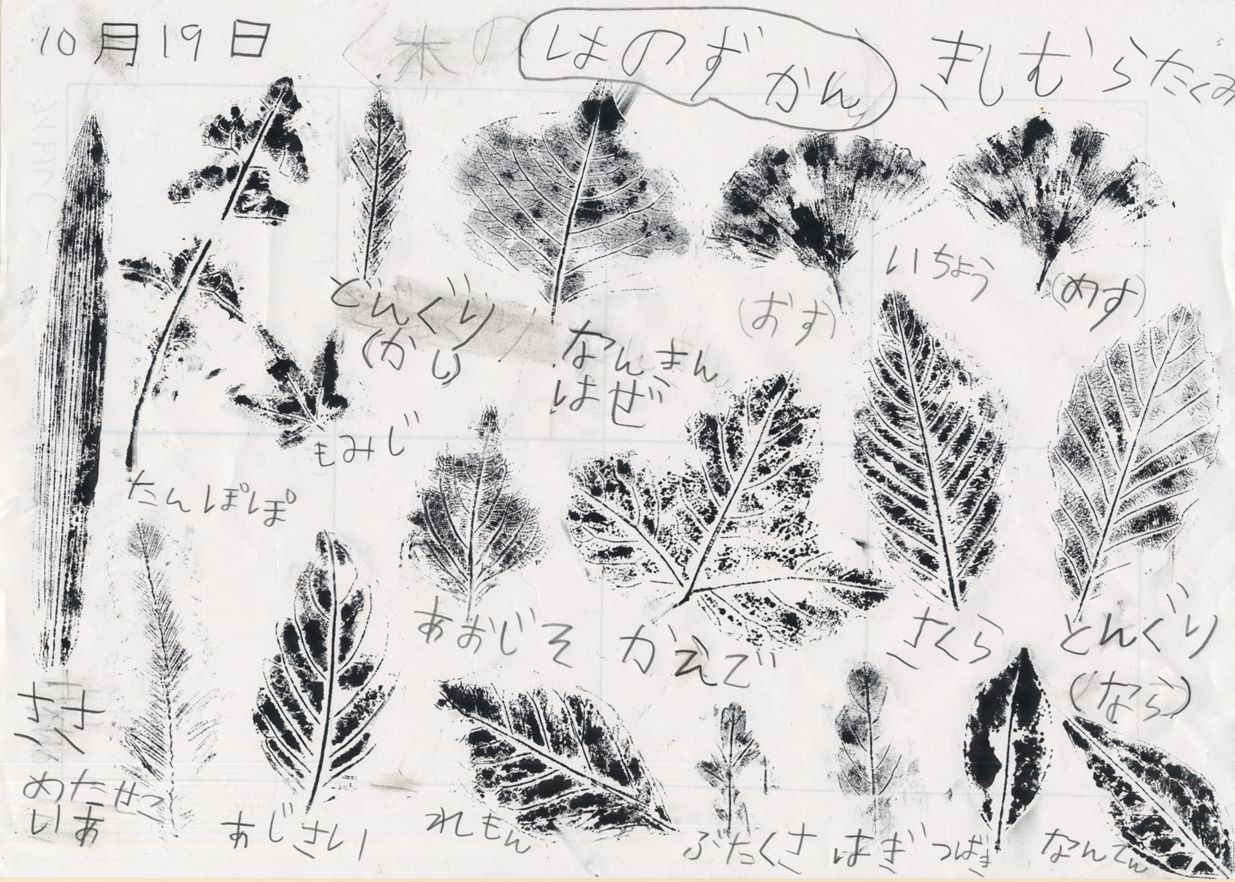 10月19日
木の
はのずかん
きしむらたくみ
とんぐり
(かし)
なんきん
はぜ
(おす)
いちょう
(めす)
もみじ
たんぽぽ
あおじそ
かえで
さくら
とんぐり
(なら)
ささ
めたせこ
いあ
あじさい
れもん
ぶたくさ
はぎ
つばき
なんてん